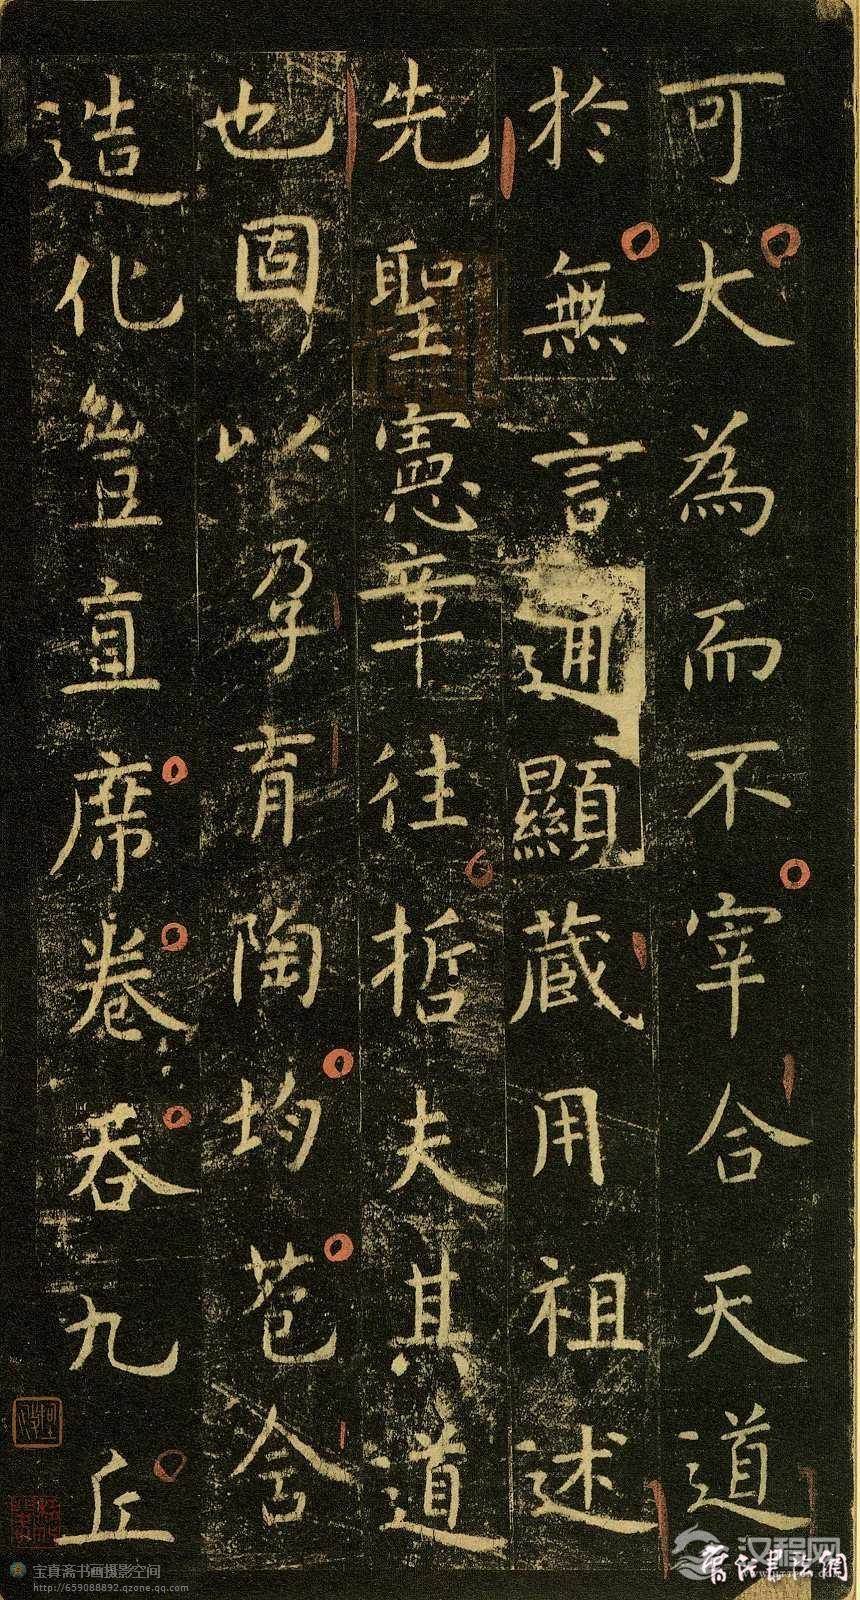 可大為而不宰合天道
於無言通顯藏用祖述
先聖憲章往哲夫其道
也固以孕育陶均苞含
造化豈直席卷吞九丘
宝真斋书画摄影空间
http://659088892.qzone.qq.com
汉程网